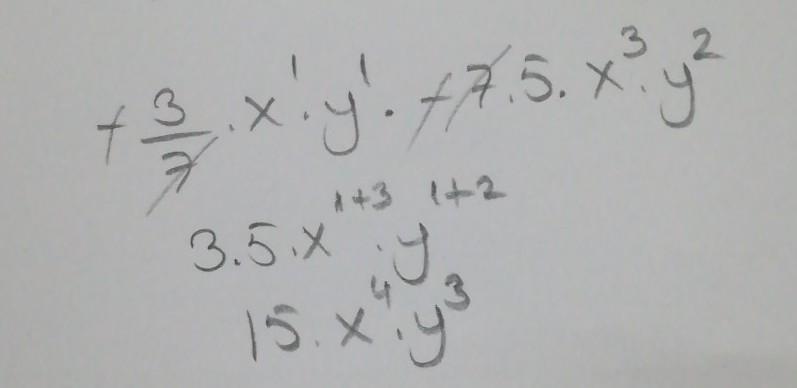 + 3/7 . x¹ . y¹ . +7.5. x³ . y²
3.5.x¹⁺³ . y¹⁺²
15. x⁴ . y³